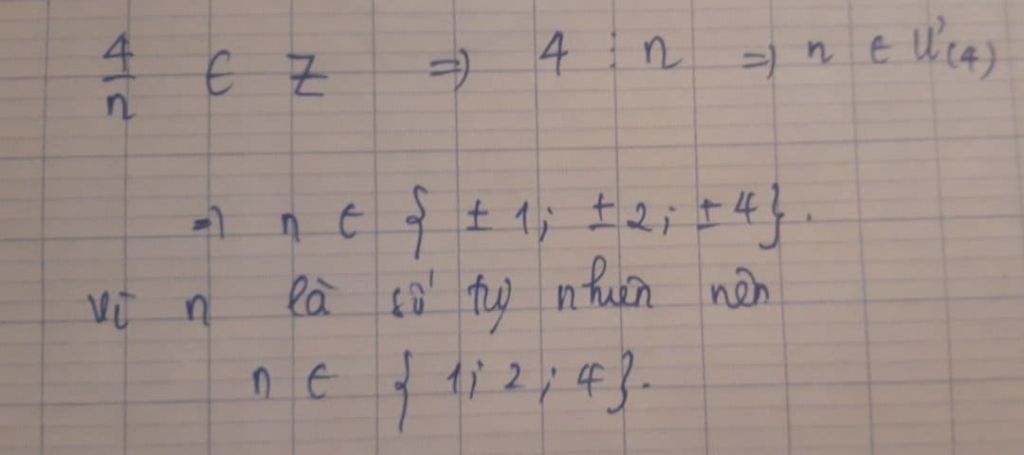 4/n ∈ Z ⇒ 4 ⋮ n ⇒ n ∈ Ư(4)
⇒ n ∈ { ± 1; ± 2; ± 4}.
Vì n là số tự nhiên nên
n ∈ { 1; 2; 4}.